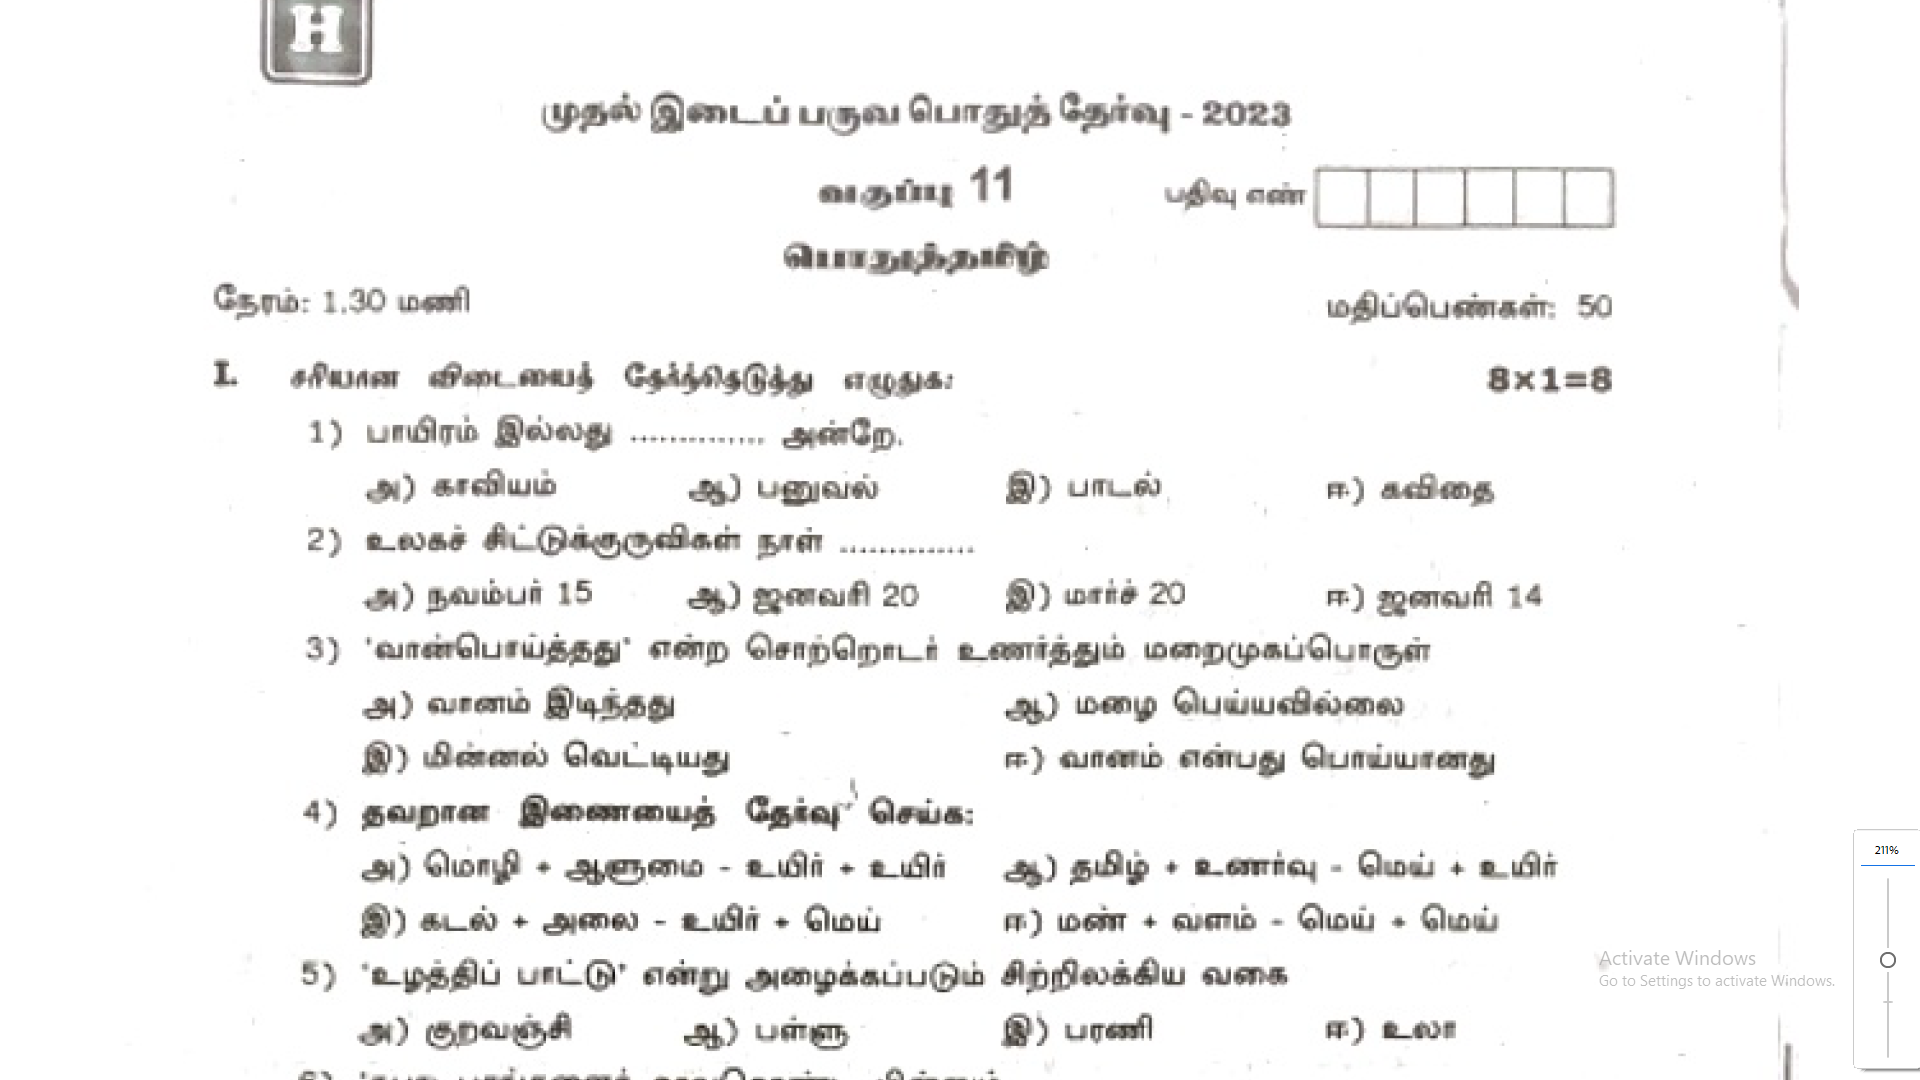 H
முதல் இடைப் பருவ பொதுத் தேர்வு - 2023
வகுப்பு 11
பதிவு எண்
பொதுத்தமிழ்
நேரம்: 1.30 மணி
மதிப்பெண்கள்: 50
I. சரியான விடையைத் தேர்ந்தெடுத்து எழுதுக: 8×1=8
1) பாயிரம் இல்லது .............. அன்றே.
அ) காவியம் ஆ) பனுவல் இ) பாடல் ஈ) கவிதை
2) உலகச் சிட்டுக்குருவிகள் நாள் ..............
அ) நவம்பர் 15 ஆ) ஜனவரி 20 இ) மார்ச் 20 ஈ) ஜனவரி 14
3) 'வான்பொய்த்தது' என்ற சொற்றொடர் உணர்த்தும் மறைமுகப்பொருள்
அ) வானம் இடிந்தது ஆ) மழை பெய்யவில்லை
இ) மின்னல் வெட்டியது ஈ) வானம் என்பது பொய்யானது
4) தவறான இணையைத் தேர்வு செய்க:
அ) மொழி + ஆளுமை - உயிர் + உயிர் ஆ) தமிழ் + உணர்வு - மெய் + உயிர்
இ) கடல் + அலை - உயிர் + மெய் ஈ) மண் + வளம் - மெய் + மெய்
5) 'உழத்திப் பாட்டு' என்று அழைக்கப்படும் சிற்றிலக்கிய வகை
அ) குறவஞ்சி ஆ) பள்ளு இ) பரணி ஈ) உலா
211%
Activate Windows
Go to Settings to activate Windows.